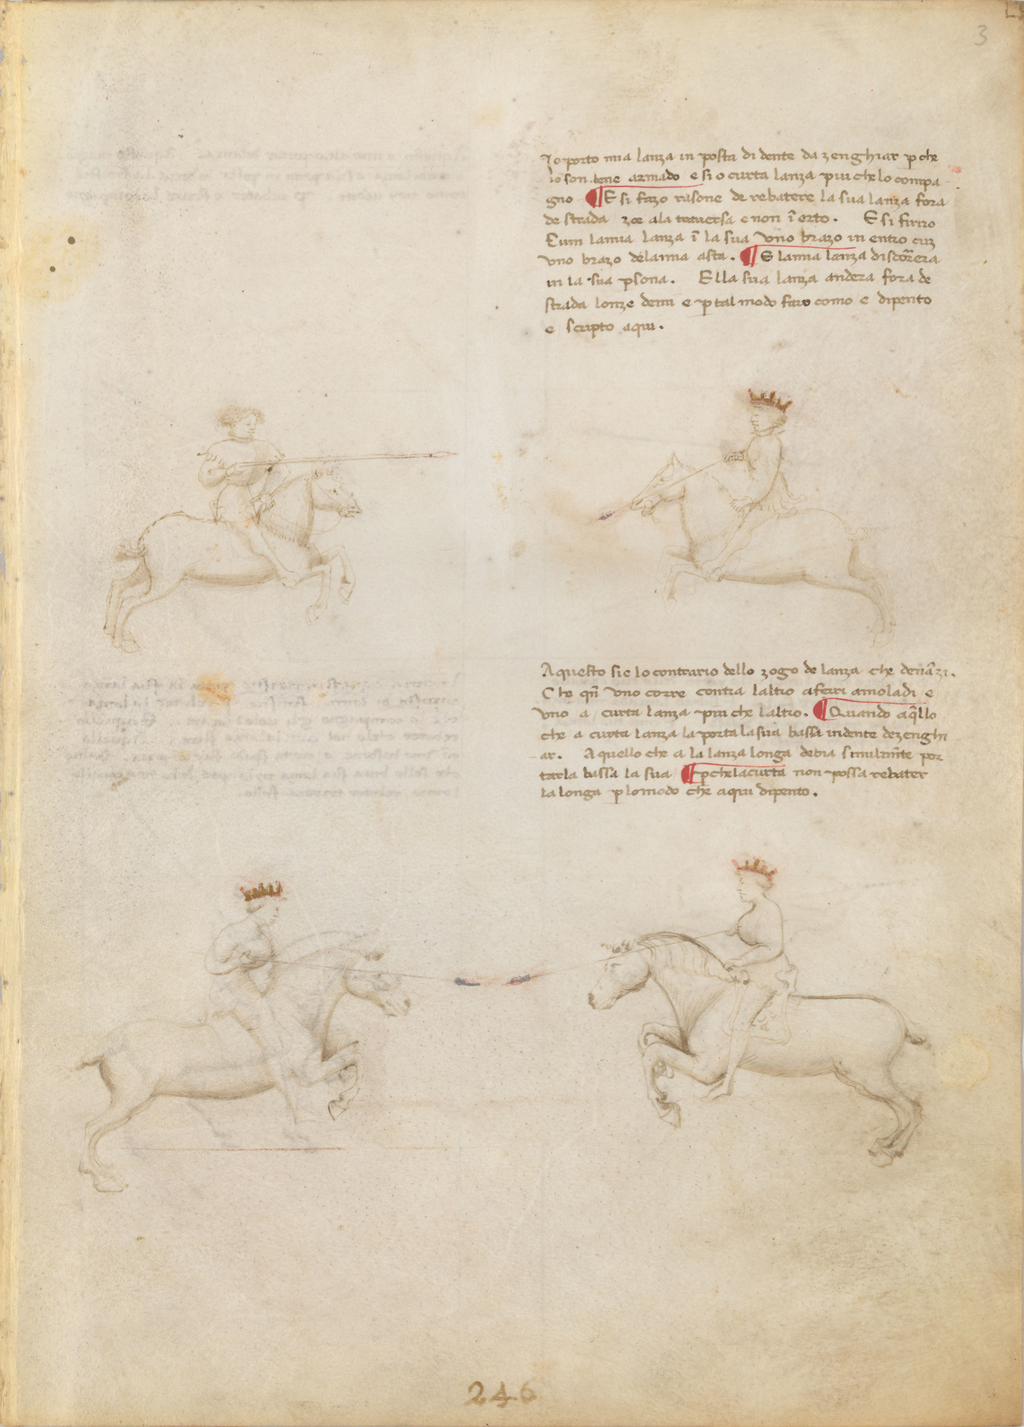 3
Io porto mia lanza in posta di dente da zenghiar p che
io son bene armado e si o curta lanza piu che lo compa
gno ¶ E si fazo rasone de rebatere la sua lanza fora
de strada zoe ala traversa e non ĩ erto. E si firiro
Cum la mia lanza ĩ la sua uno brazo in entro cuz
uno brazo dela mia asta. ¶ E la mia lanza discorera
in la sua psona. E lla sua lanza andera fora de
strada lonze de mi e p tal modo faro como e dipento
e scripto aqui.
Aquesto sie lo contrario dello zogo de lanza che denãzi.
Che qñ uno corre contra laltro a feri amoladi e
uno a curta lanza piu che laltro. ¶ Quando aqllo
che a curta lanza la porta la sua bassa in dente de zenghi
ar. Aquello che a la lanza longa debia similmẽte por
tarla bassa la sua ¶ p che la curta non possa rebater
la longa p lo modo che aqui dipento.
246